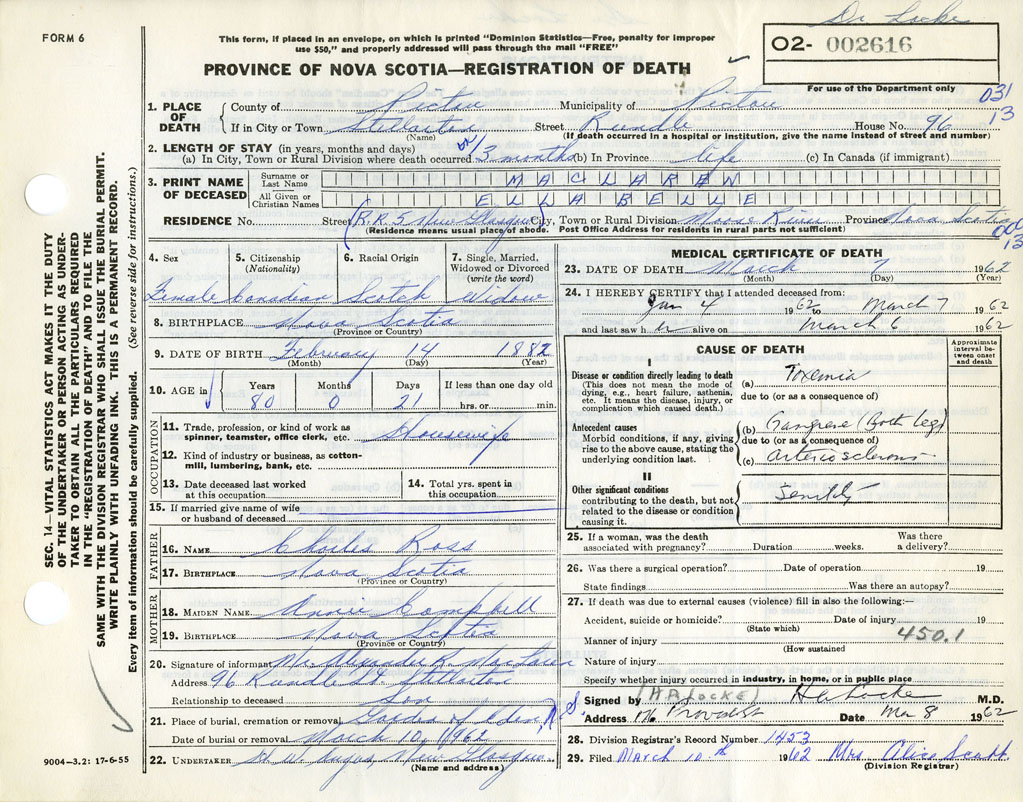 Dr Locke
FORM 6
This form, if placed in an envelope, on which is printed "Dominion Statistics—Free, penalty for improper
use $50," and properly addressed will pass through the mail "FREE"
PROVINCE OF NOVA SCOTIA—REGISTRATION OF DEATH
O2- 002616
For use of the Department only
031
13
1. PLACE OF DEATH
County of Pictou Municipality of Pictou
If in City or Town Stellarton Street Rundle House No. 96
(Name) (If death occurred in a hospital or institution, give the name instead of street and number)
2. LENGTH OF STAY (in years, months and days)
(a) In City, Town or Rural Division where death occurred 3 months (b) In Province life (c) In Canada (if immigrant)
3. PRINT NAME OF DECEASED
Surname or Last Name MACLAREN
All Given or Christian Names ELLA BELLE
RESIDENCE No. Street R.R. 5 New Glasgow City, Town or Rural Division Moose River Province Nova Scotia
(Residence means usual place of abode. Post Office Address for residents in rural parts not sufficient)
13
4. Sex 5. Citizenship (Nationality) 6. Racial Origin 7. Single, Married, Widowed or Divorced (write the word)
Female Canadian Scotch Widow
8. BIRTHPLACE Nova Scotia
(Province or Country)
9. DATE OF BIRTH February 14 1882
(Month) (Day) (Year)
10. AGE in Years Months Days If less than one day old
80 0 21 hrs. or min.
OCCUPATION
11. Trade, profession, or kind of work as spinner, teamster, office clerk, etc. Housewife
12. Kind of industry or business, as cotton-mill, lumbering, bank, etc.
13. Date deceased last worked at this occupation 14. Total yrs. spent in this occupation
15. If married give name of wife or husband of deceased
FATHER
16. NAME Charles Ross
17. BIRTHPLACE Nova Scotia
(Province or Country)
MOTHER
18. MAIDEN NAME Annie Campbell
19. BIRTHPLACE Nova Scotia
(Province or Country)
20. Signature of informant Mr. Alexander R. MacLaren
Address 96 Rundle St. Stellarton
Relationship to deceased Son
21. Place of burial, cremation or removal Garden of Eden, N.S.
Date of burial or removal March 10, 1962
22. UNDERTAKER H. W. Angus, New Glasgow
(Name and address)
MEDICAL CERTIFICATE OF DEATH
23. DATE OF DEATH March 7 1962
(Month) (Day) (Year)
24. I HEREBY CERTIFY that I attended deceased from:
Jan 4 1962 to March 7 1962
and last saw her alive on March 6 1962
CAUSE OF DEATH
Approximate interval between onset and death
I
Disease or condition directly leading to death
(This does not mean the mode of dying, e.g., heart failure, asthenia, etc. It means the disease, injury, or complication which caused death.)
(a) Toxemia
due to (or as a consequence of)
Antecedent causes
Morbid conditions, if any, giving rise to the above cause, stating the underlying condition last.
(b) Gangrene (Both legs)
due to (or as a consequence of)
(c) Arteriosclerosis
II
Other significant conditions
contributing to the death, but not related to the disease or condition causing it.
Senility
25. If a woman, was the death associated with pregnancy? Duration weeks. Was there a delivery?
26. Was there a surgical operation? Date of operation 19
State findings Was there an autopsy?
27. If death was due to external causes (violence) fill in also the following:—
Accident, suicide or homicide? Date of injury 19
(State which)
450.1
Manner of injury
(How sustained)
Nature of injury
Specify whether injury occurred in industry, in home, or in public place
Signed by (H.A. LOCKE) H A Locke M.D.
Address Provost St Date Mar 8 1962
28. Division Registrar's Record Number 1453
29. Filed March 10th 1962 Mrs Alice
(Division Registrar)
SEC. 14—VITAL STATISTICS ACT MAKES IT THE DUTY
OF THE UNDERTAKER OR PERSON ACTING AS UNDER-
TAKER TO OBTAIN ALL THE PARTICULARS REQUIRED
IN THE "REGISTRATION OF DEATH" AND TO FILE THE
SAME WITH THE DIVISION REGISTRAR WHO SHALL ISSUE THE BURIAL PERMIT.
WRITE PLAINLY WITH UNFADING INK. THIS IS A PERMANENT RECORD.
Every item of information should be carefully supplied. (See reverse side for instructions.)
9004—3.2: 17-6-55